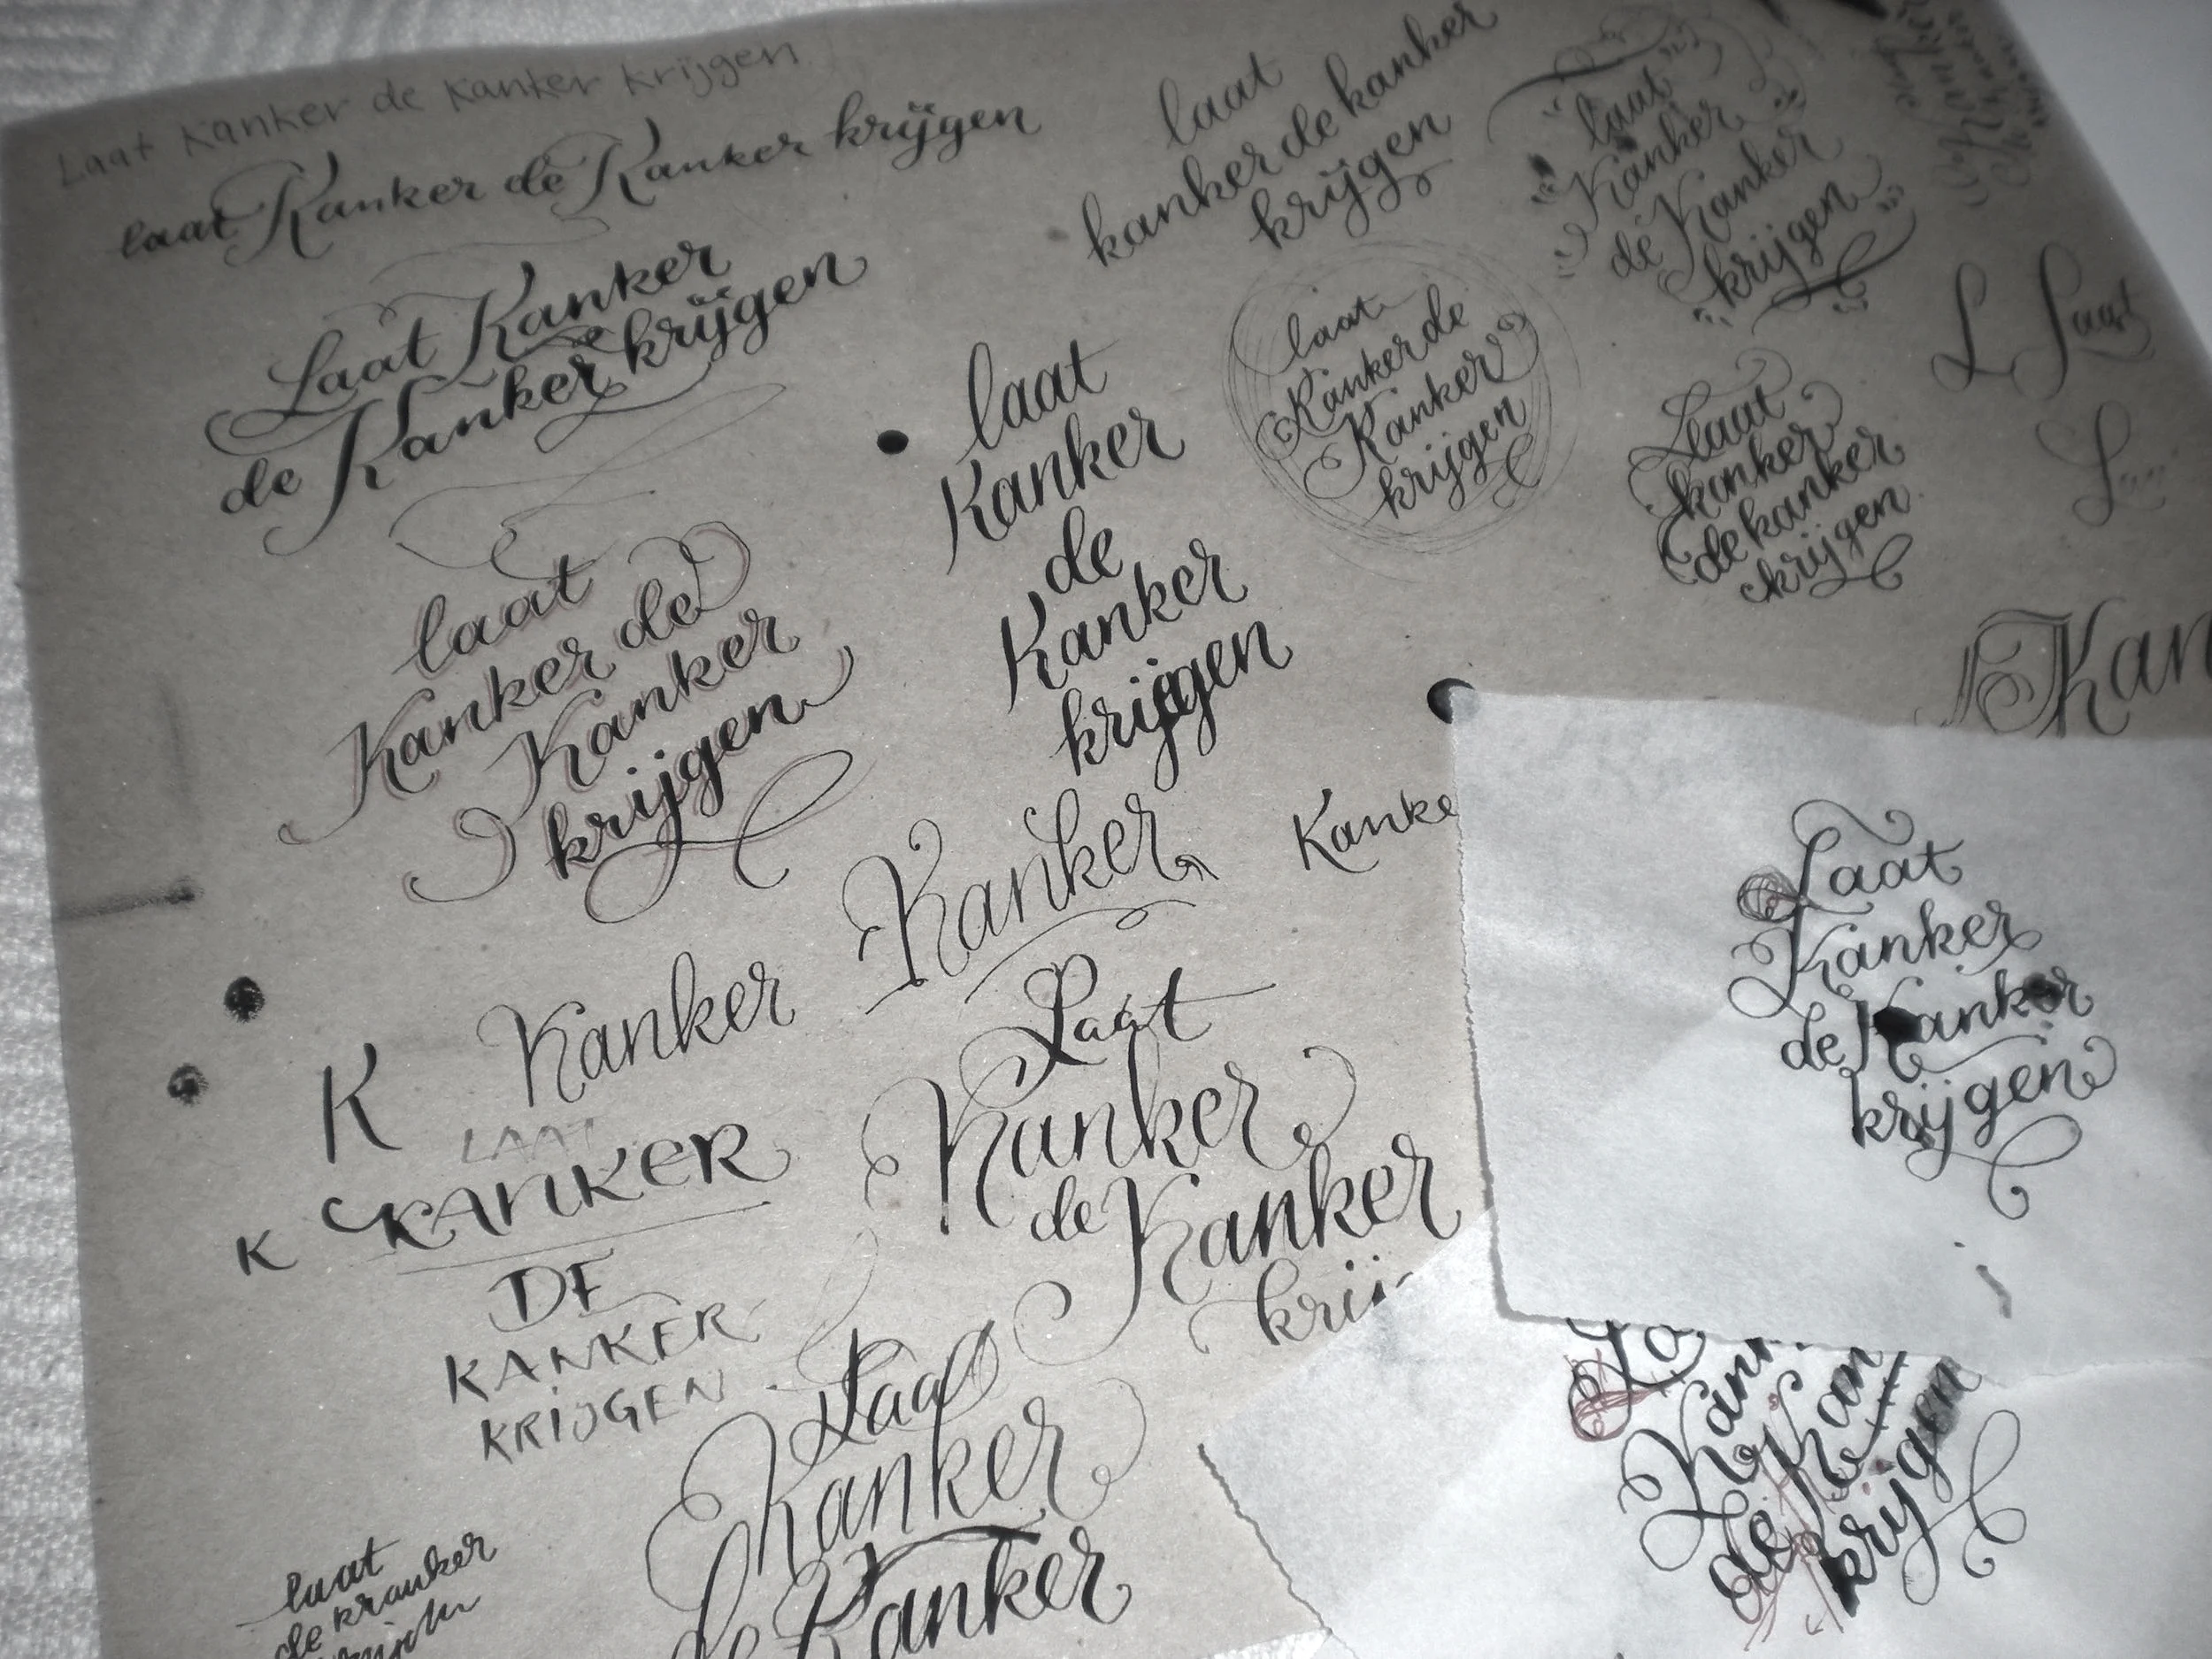 Laat Kanker de Kanker krijgen
laat Kanker de Kanker krijgen
Laat Kanker
de Kanker krijgen
laat
Kanker de
Kanker
krijgen
laat
kanker de kanker
krijgen
laat
Kanker
de Kanker
krijgen
laat
Kanker
de
Kanker
krijgen
laat
Kanker de
Kanker
krijgen
L Laat
L
Laat
kanker
de kanker
krijgen
Kan
Kanker
Kanke
K Kanker
LAAT
K KANKER
DE
KANKER
KRIJGEN
Laat
Kanker
de Kanker
krij
Laat
Kanker
de Kanker
krijgen
Laat
Kanker
de Kanker
laat
de
La
Kan
de Kan
krijgen